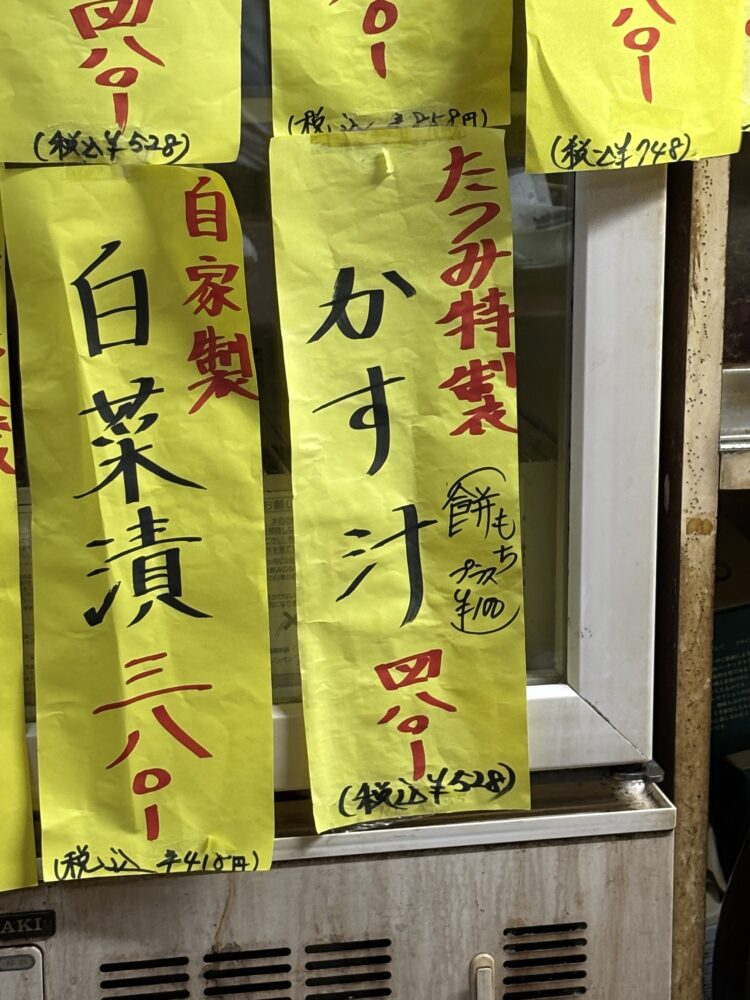 四八〇ー
(税込¥528)
〇ー
(税込
〇ー
(税込¥748)
たつみ特製
かす汁
(餅もち
プラス
¥100)
四八〇ー
(税込¥528)
自家製
白菜漬
三八〇ー
(税込 ¥418円)
AKI